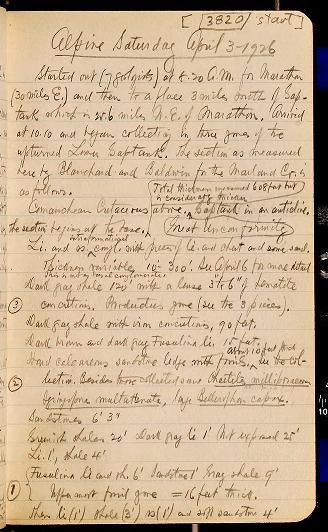 [3820 / start]
Alpine Saturday April 3-1926
Started out (7 geologists) at 8.20 A.M. for Marathon
(30 miles E.) and then to a place 3 miles south of Gap-
tank which is 25.6 miles N.E. of Marathon. Arrived
at 10.10 and began collecting in three zones of the
upturned Lower Gaptank. The section as measured
here by Blanchard and Baldwin for the Marland Co. is
as follows.
Total thickness measured 608 feet but
is considerably thicker
Comanchean Cretaceous above, Gaptank in an anticline.
the section begins at the base. Great Unconformity
Li. and ss. congl. with pieces of li. and chert and some sand.
Thickness variable 10-300'. See April 6 for more detail
This is not a basal conglomerate
Dark gray shale 120' with a lense 3 to 6" of hematite
(3) concretions. Productus zone (see the 3 pieces).
Dark gray shale with iron concretions, 90 feet.
Dark brown and dark gray fusulina li. 10 feet.
about 10 feet thick
Hard calcareous sandstone ledge with fossils, see the col-
(2) lection. Besides those collected saw Chaetetes milleporaceus
Syringopora multattenuata, large Bellerophon crassus.
Sandstones 6' 3"
Greenish shales 20' Dark gray li. 1' Not exposed 25'
Li. 1', shale 4'
(1) Fusulina li. and sh. 6' Sandstone 1' Gray shale 9'
Uppermost fossil zone = 16 feet thick.
Then li. (1') shale (3') ss (1') and soft sandstone 4'